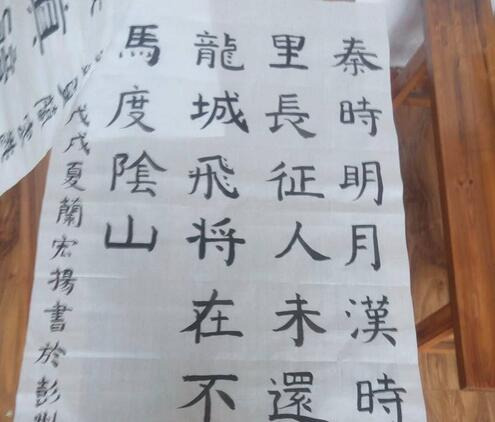 秦時明月漢時
里長征人未還
龍城飛将在不
馬度陰山
戊戌夏蘭宏揚書於彭